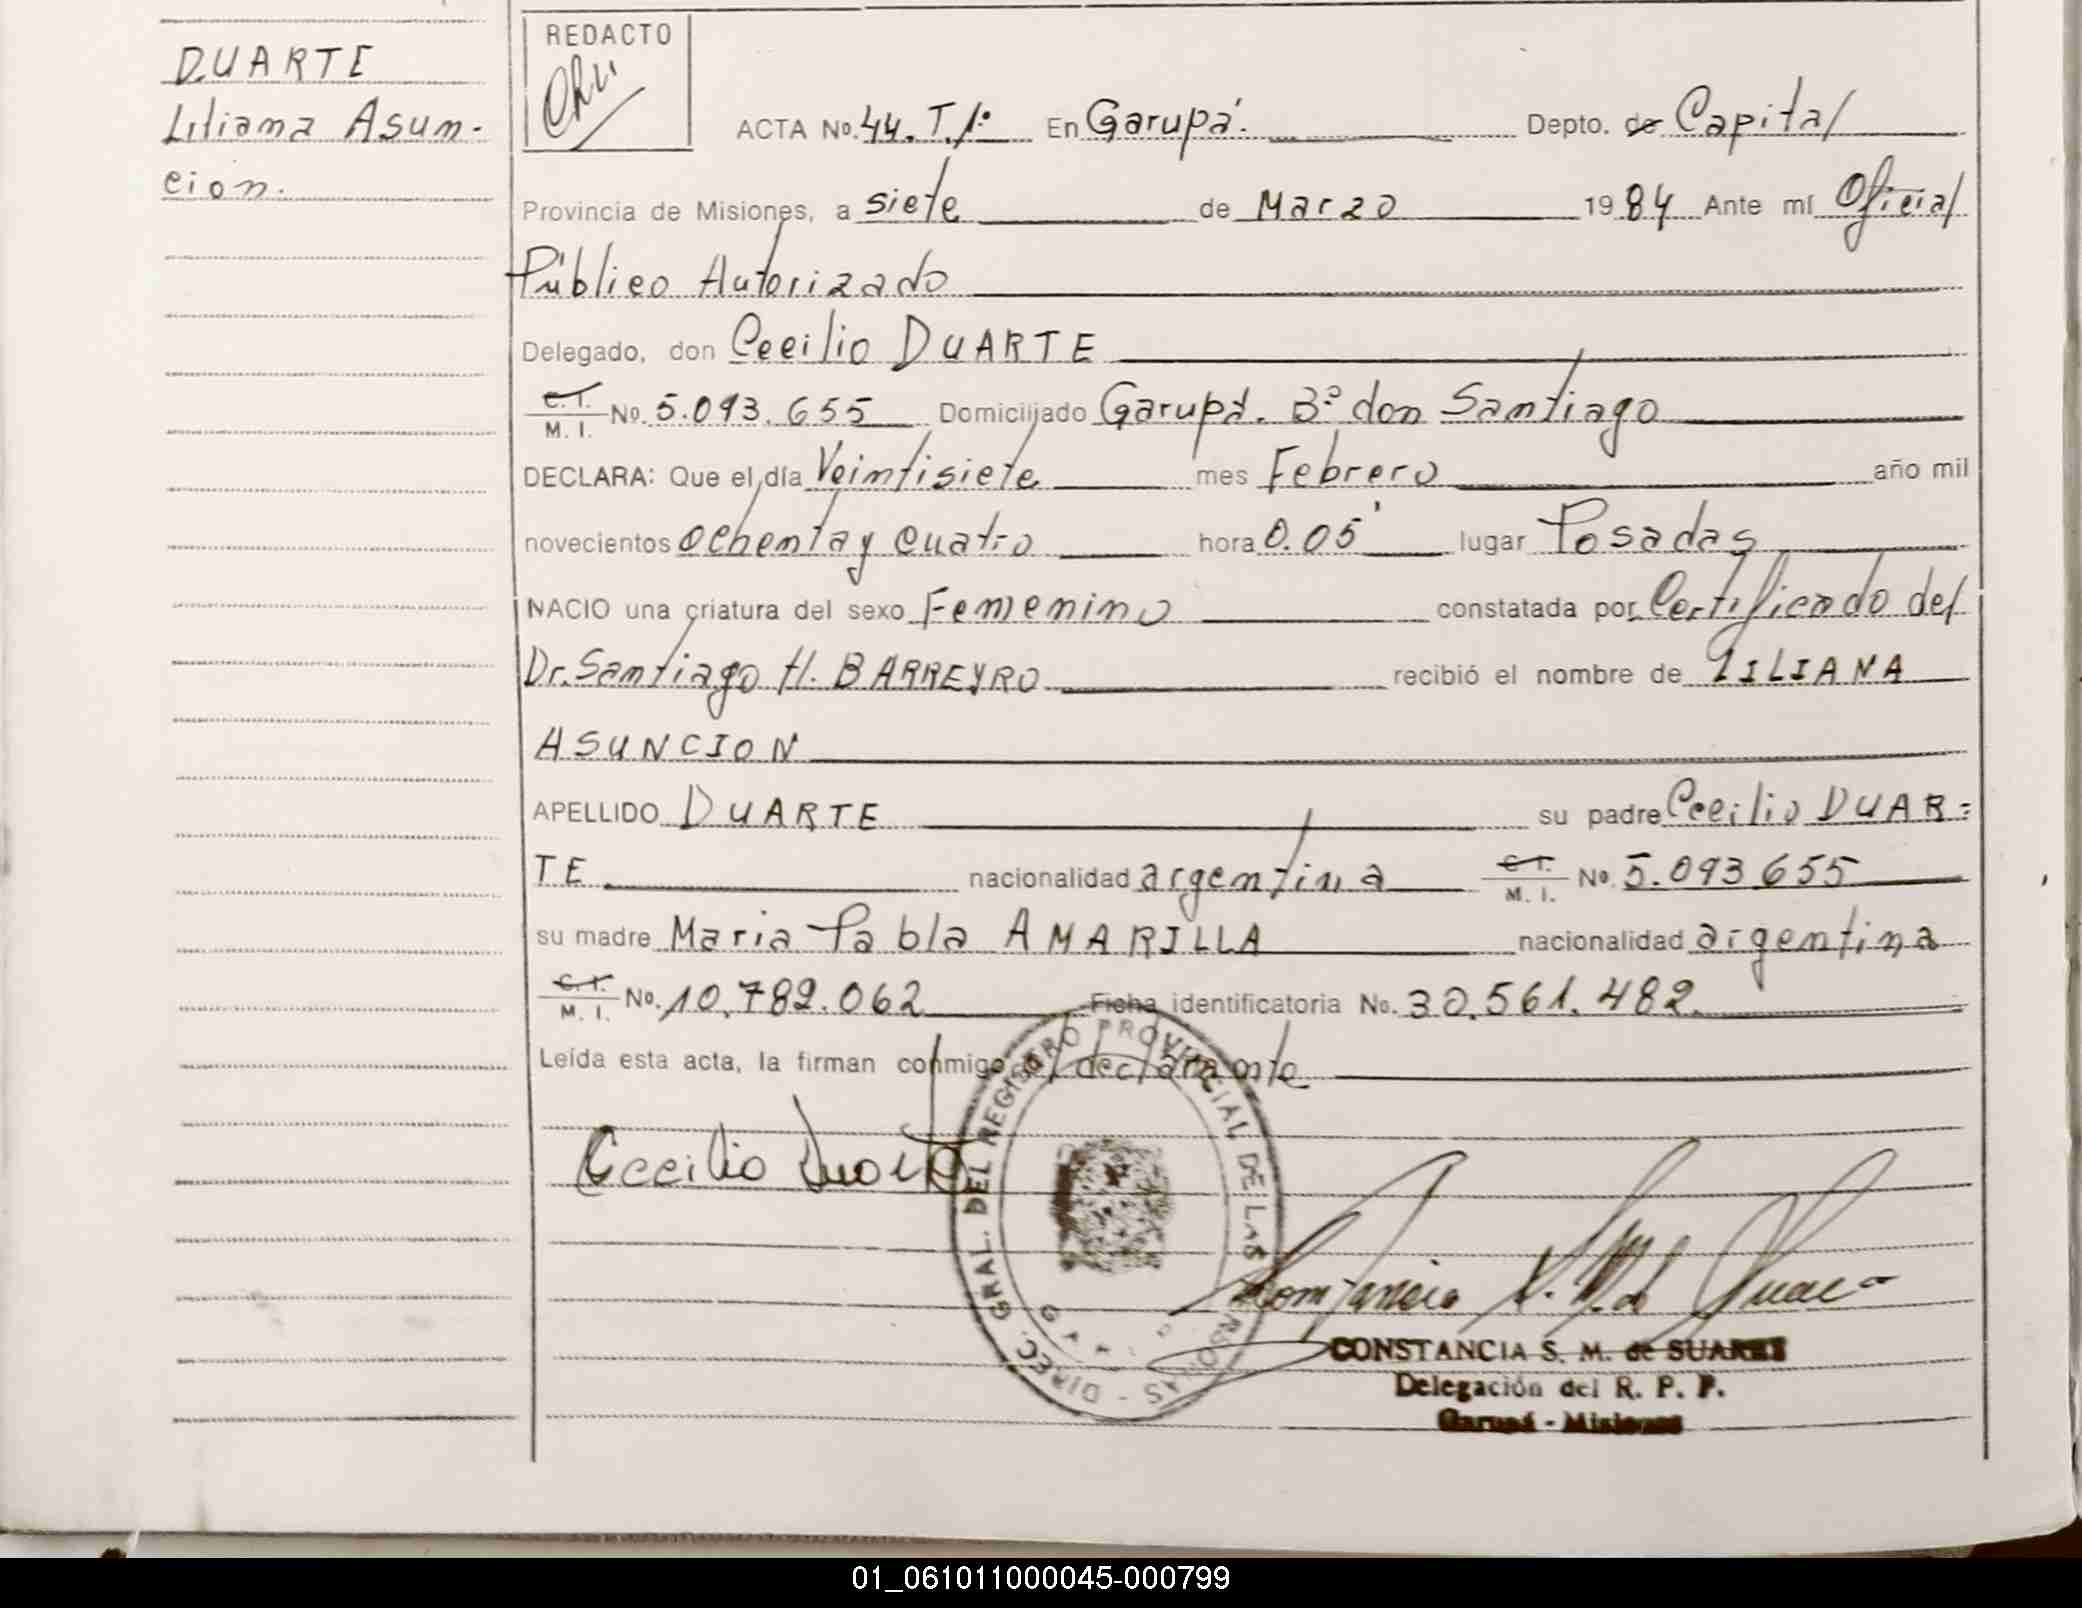 DUARTE
Liliana Asun-
cion.
REDACTO
ACTA No. 44. T. 1º En Garupá. Depto. de Capital
Provincia de Misiones, a siete de Marzo 1984 Ante mí Oficial
Público Autorizado
Delegado, don Cecilio DUARTE
C. I. / M. I. No. 5.093.655 Domiciliado Garupá. Bº don Santiago
DECLARA: Que el día Veintisiete mes Febrero año mil
novecientos ochenta y cuatro hora 0.05' lugar Posadas
NACIO una criatura del sexo Femenino constatada por Certificado del
Dr. Santiago H. BARREYRO recibió el nombre de LILIANA
ASUNCION
APELLIDO DUARTE su padre Cecilio DUAR=
TE nacionalidad argentina C. I. / M. I. No. 5.093.655
su madre Maria Pabla AMARILLA nacionalidad argentina
C. I. / M. I. No. 10.789.062 Ficha identificatoria No. 30.561.482
Leída esta acta, la firman conmigo el declarante
Cecilio Duarte
DIREC. GRAL. DEL REGISTRO PROVINCIAL DE LAS PERSONAS -
CONSTANCIA S. M. de SUAREZ
Delegación del R. P. P.
Garupá - Misiones
01_061011000045-000799